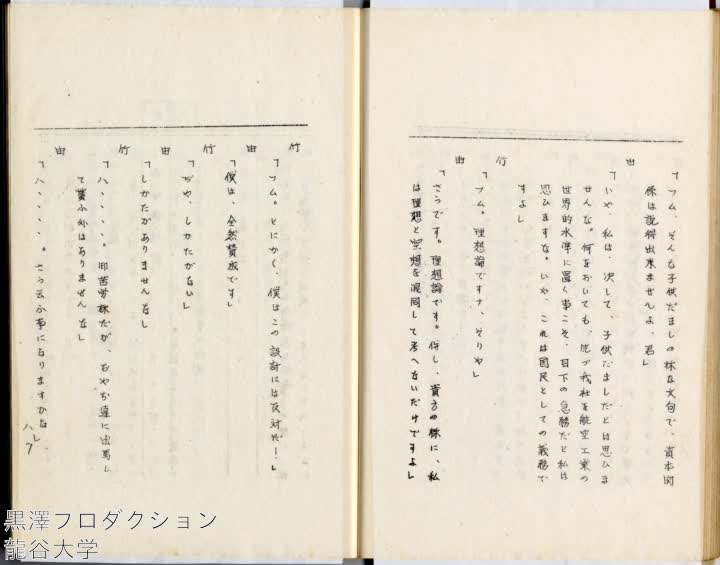 「フム、そんな子供だましの様な文句で、資本関
係は説得出来ませんよ、君」
由
「いや、私は、決して、子供だましだとは思ひま
せんな。何をおいても、先づ我社を航空工業の
世界的水準に置く事こそ、目下の急務だと私は
思ひますな。いや、これは国民としての義務で
すよ」
竹
「フム。理想論ですナ、そりや」
由
「さうです。理想論です。併し、貴方の様に、私
は理想と空想を混同して考へないだけですよ」
竹
「フム。とにかく、僕はこの設計には反対だ!」
由
「僕は、全然賛成です」
竹
「ぢや、しかたがない」
由
「しかたがありませんな」
竹
「ハ、、、、。御苦労様だが、おやぢ達に出馬し
て貰ふ外はありませんな」
由
「ハ、、、、。さう云ふ事になりますかな」
ハ7
黒澤プロダクション
龍谷大学